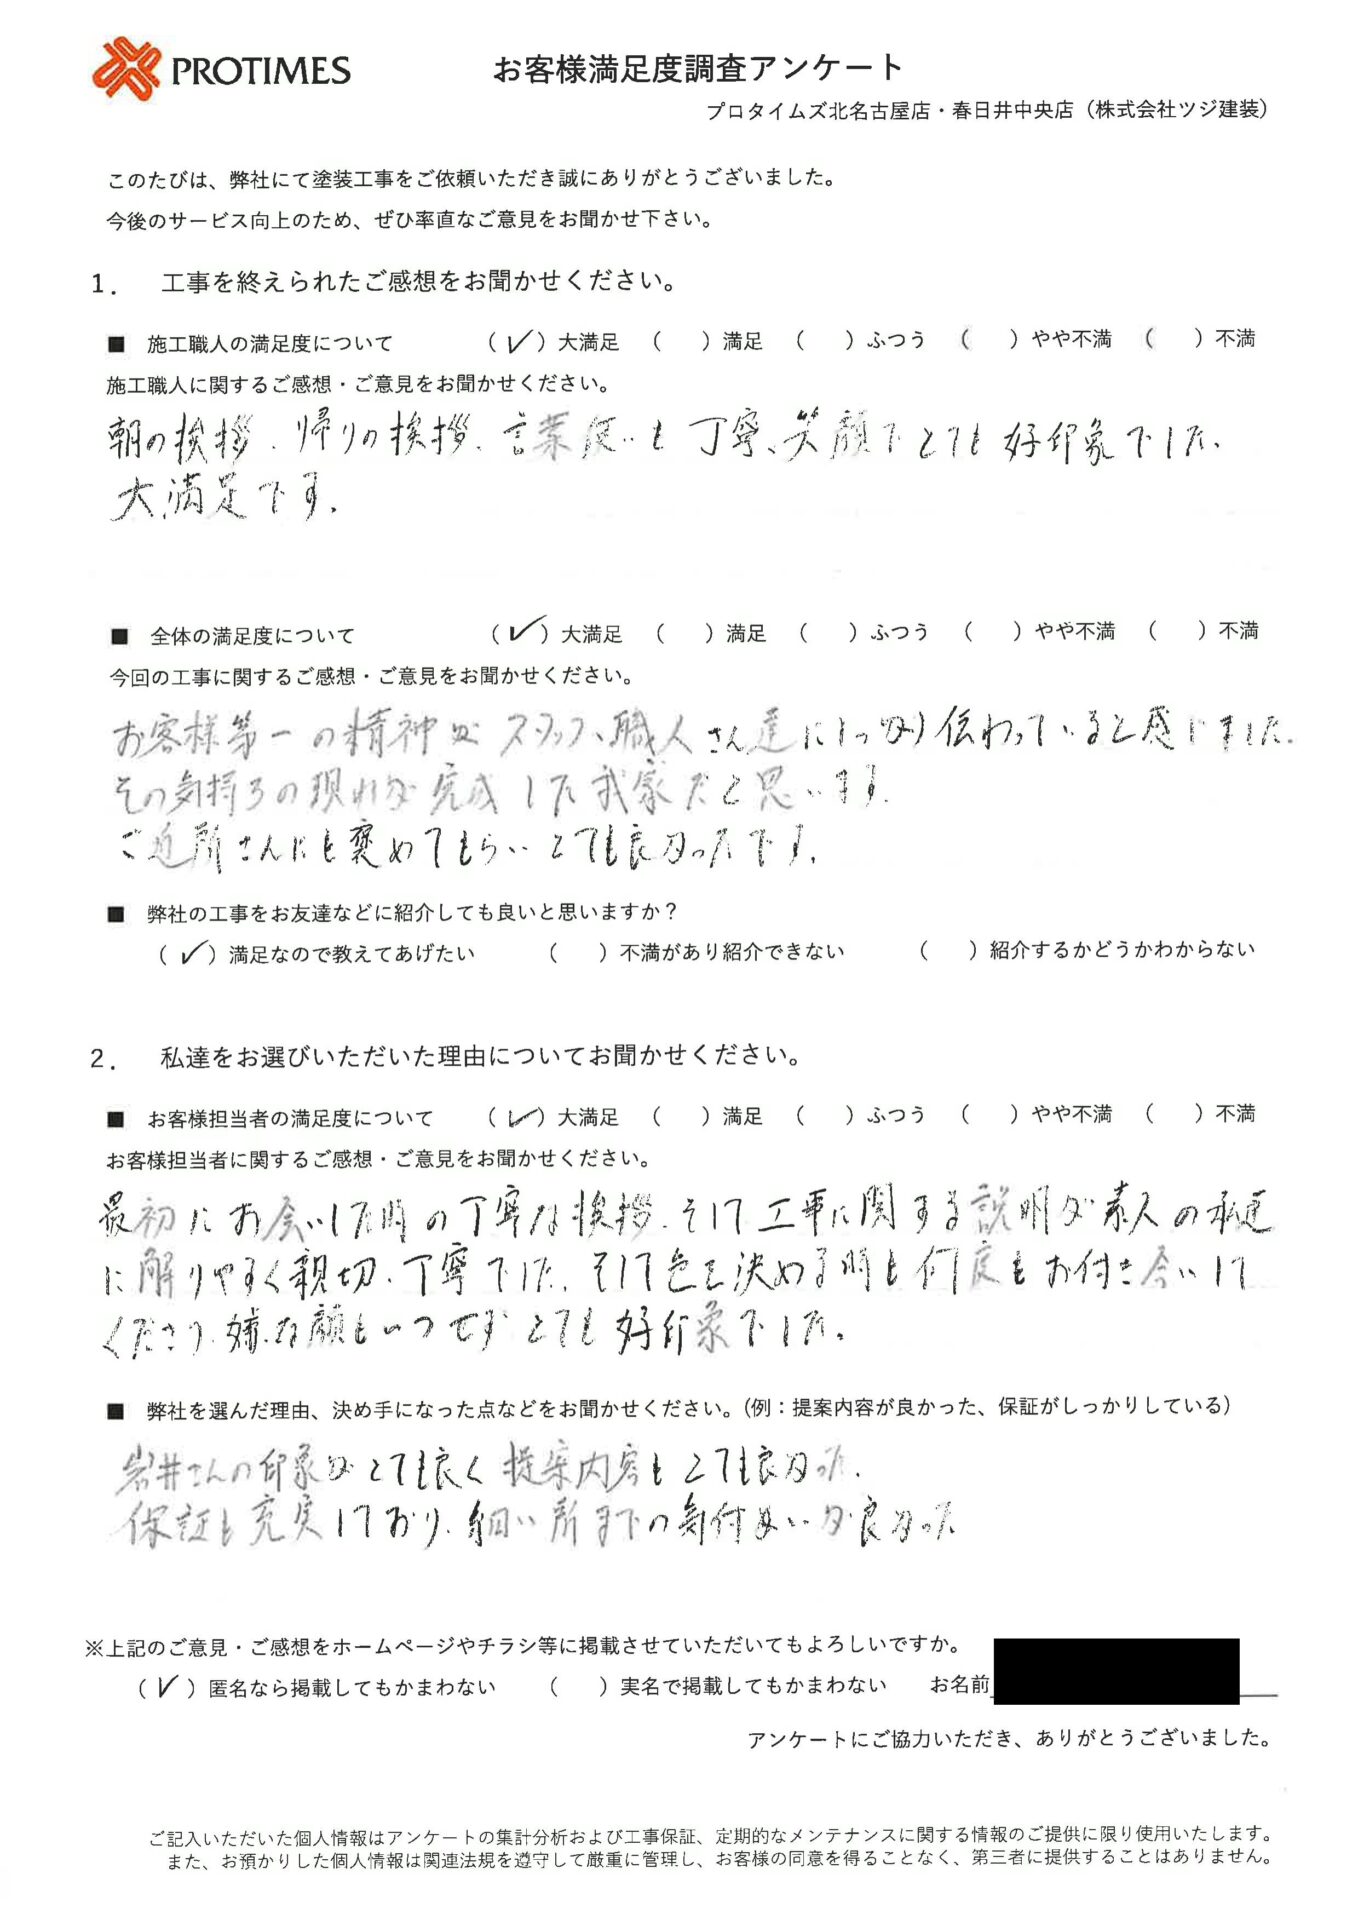 PROTIMES
お客様満足度調査アンケート
プロタイムズ北名古屋店・春日井中央店（株式会社ツジ建装）
このたびは、弊社にて塗装工事をご依頼いただき誠にありがとうございました。
今後のサービス向上のため、ぜひ率直なご意見をお聞かせ下さい。
1． 工事を終えられたご感想をお聞かせください。
■ 施工職人の満足度について （✓）大満足 （ ）満足 （ ）ふつう （ ）やや不満 （ ）不満
施工職人に関するご感想・ご意見をお聞かせください。
朝の挨拶、帰りの挨拶、言葉使いも丁寧、笑顔でとても好印象でした、
大満足です。
■ 全体の満足度について （✓）大満足 （ ）満足 （ ）ふつう （ ）やや不満 （ ）不満
今回の工事に関するご感想・ご意見をお聞かせください。
お客様第一の精神がスタッフ、職人さん達にしっかり伝わっていると感じました。
その気持ちの現れが完成した我家だと思います。
ご近所さんにも褒めてもらいとても良かったです。
■ 弊社の工事をお友達などに紹介しても良いと思いますか？
（✓）満足なので教えてあげたい （ ）不満があり紹介できない （ ）紹介するかどうかわからない
2． 私達をお選びいただいた理由についてお聞かせください。
■ お客様担当者の満足度について （✓）大満足 （ ）満足 （ ）ふつう （ ）やや不満 （ ）不満
お客様担当者に関するご感想・ご意見をお聞かせください。
最初にお会いした時の丁寧な挨拶、そして工事に関する説明が素人の私達
に解りやすく親切、丁寧でした、そして色を決める時も何度もお付き会いして
くださり、嫌な顔もいつせずとても好印象でした。
■ 弊社を選んだ理由、決め手になった点などをお聞かせください。（例：提案内容が良かった、保証がしっかりしている）
岩井さんの印象がとても良く提案内容もとても良かった、
保証も充実しており、細い所までの気付かいが良かった
※上記のご意見・ご感想をホームページやチラシ等に掲載させていただいてもよろしいですか。
（✓）匿名なら掲載してもかまわない （ ）実名で掲載してもかまわない お名前
アンケートにご協力いただき、ありがとうございました。
ご記入いただいた個人情報はアンケートの集計分析および工事保証、定期的なメンテナンスに関する情報のご提供に限り使用いたします。
また、お預かりした個人情報は関連法規を遵守して厳重に管理し、お客様の同意を得ることなく、第三者に提供することはありません。